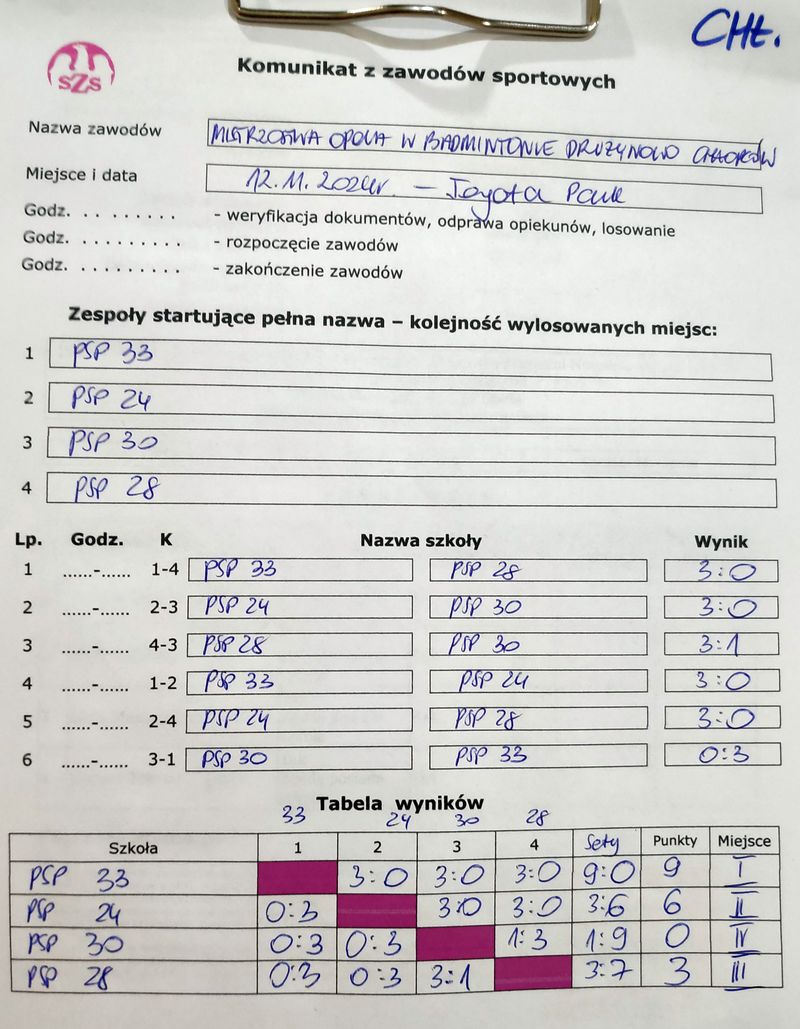 CHŁ.
SZS
Komunikat z zawodów sportowych
Nazwa zawodów MISTRZOSTWA OPOLA W BADMINTONIE DRUŻYNOWO CHŁOPCÓW
Miejsce i data 12.11.2024r. – Toyota Park
Godz. . . . . . . . . . - weryfikacja dokumentów, odprawa opiekunów, losowanie
Godz. . . . . . . . . . - rozpoczęcie zawodów
Godz. . . . . . . . . . - zakończenie zawodów
Zespoły startujące pełna nazwa – kolejność wylosowanych miejsc:
1 PSP 33
2 PSP 24
3 PSP 30
4 PSP 28
Lp. Godz. K Nazwa szkoły Wynik
1 ......-...... 1-4 PSP 33 PSP 28 3:0
2 ......-...... 2-3 PSP 24 PSP 30 3:0
3 ......-...... 4-3 PSP 28 PSP 30 3:1
4 ......-...... 1-2 PSP 33 PSP 24 3:0
5 ......-...... 2-4 PSP 24 PSP 28 3:0
6 ......-...... 3-1 PSP 30 PSP 33 0:3
Tabela wyników
33 24 30 28
Szkoła 1 2 3 4 Sety Punkty Miejsce
PSP 33 3:0 3:0 3:0 9:0 9 I
PSP 24 0:3 3:0 3:0 3:6 6 II
PSP 30 0:3 0:3 1:3 1:9 0 IV
PSP 28 0:3 0:3 3:1 3:7 3 III